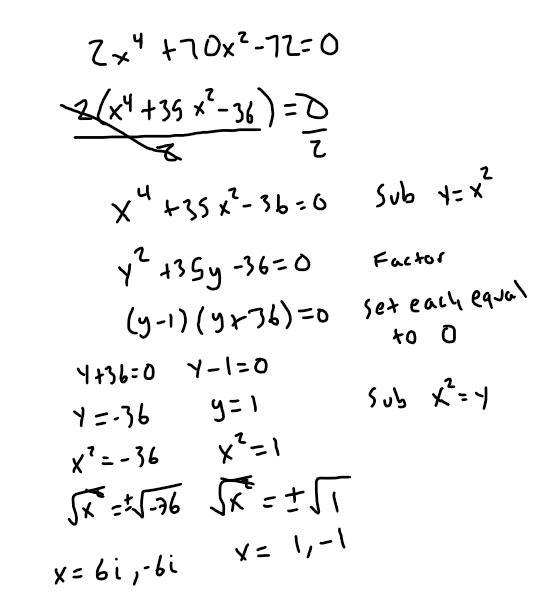 2x⁴ +70x²-72=0
2(x⁴+35x²-36)/2 = 0/2
x⁴ +35x²-36=0 Sub y=x²
y² +35y -36=0 Factor
(y-1)(y+36)=0 Set each equal
to 0
y+36=0 y-1=0
y=-36 y=1 Sub x²=y
x²=-36 x²=1
√x² =±√-36 √x² = ±√1
x=6i,-6i x= 1,-1